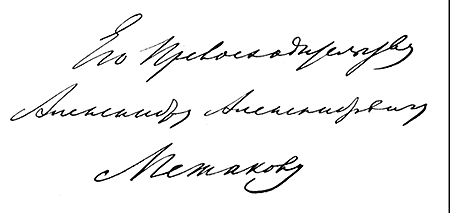 Его Превосходительству
Александру Александровичу
Межакову